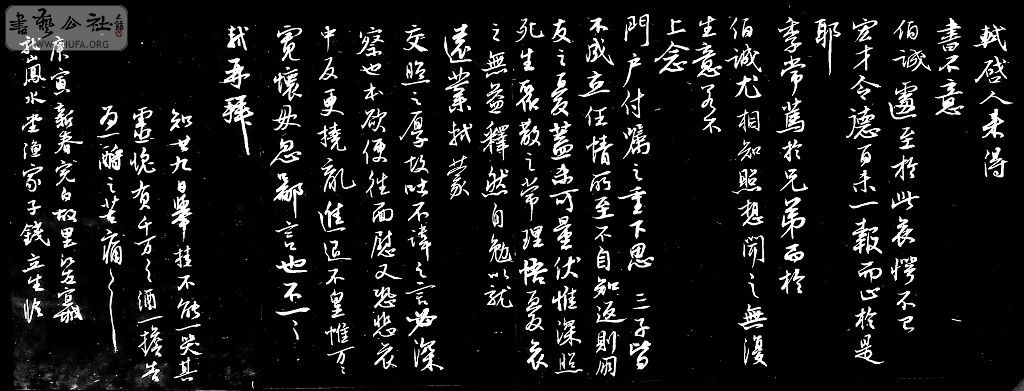 軾啓人來得
書不意
伯誠遽至於此哀愕不已
宏才令德百未一報而止於是
耶
季常篤於兄弟而於
伯誠尤相知照想聞之無復
生意若不
上念
門户付囑之重下思三子皆
不成立任情所至不自知返則朋
友之憂蓋未可量伏惟深照
死生聚散之常理悟憂哀
之無益釋然自勉以就
遠業軾蒙
交照之厚故吐不諱之言必深
察也本欲便往面慰又恐悲哀
中反更撓亂進退不皇惟萬萬
寬懷毋忽鄙言也不一一
軾再拜
知廿九日舉挂不能一哭其
靈愧負千萬千萬酒一擔告
為一酹之苦痛苦痛
庚寅新春完白故里
鳳水堂漁家子錢立生
書藝公社
WWW.SHUFA.ORG